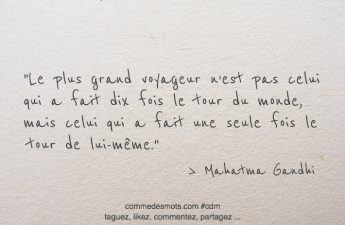 "Le plus grand voyageur n'est pas celui
qui a fait dix fois le tour du monde,
mais celui qui a fait une seule fois le
tour de lui-même."
> Mahatma Gandhi
commedesmots.com #cdm
taguez, likez, commentez, partagez ...